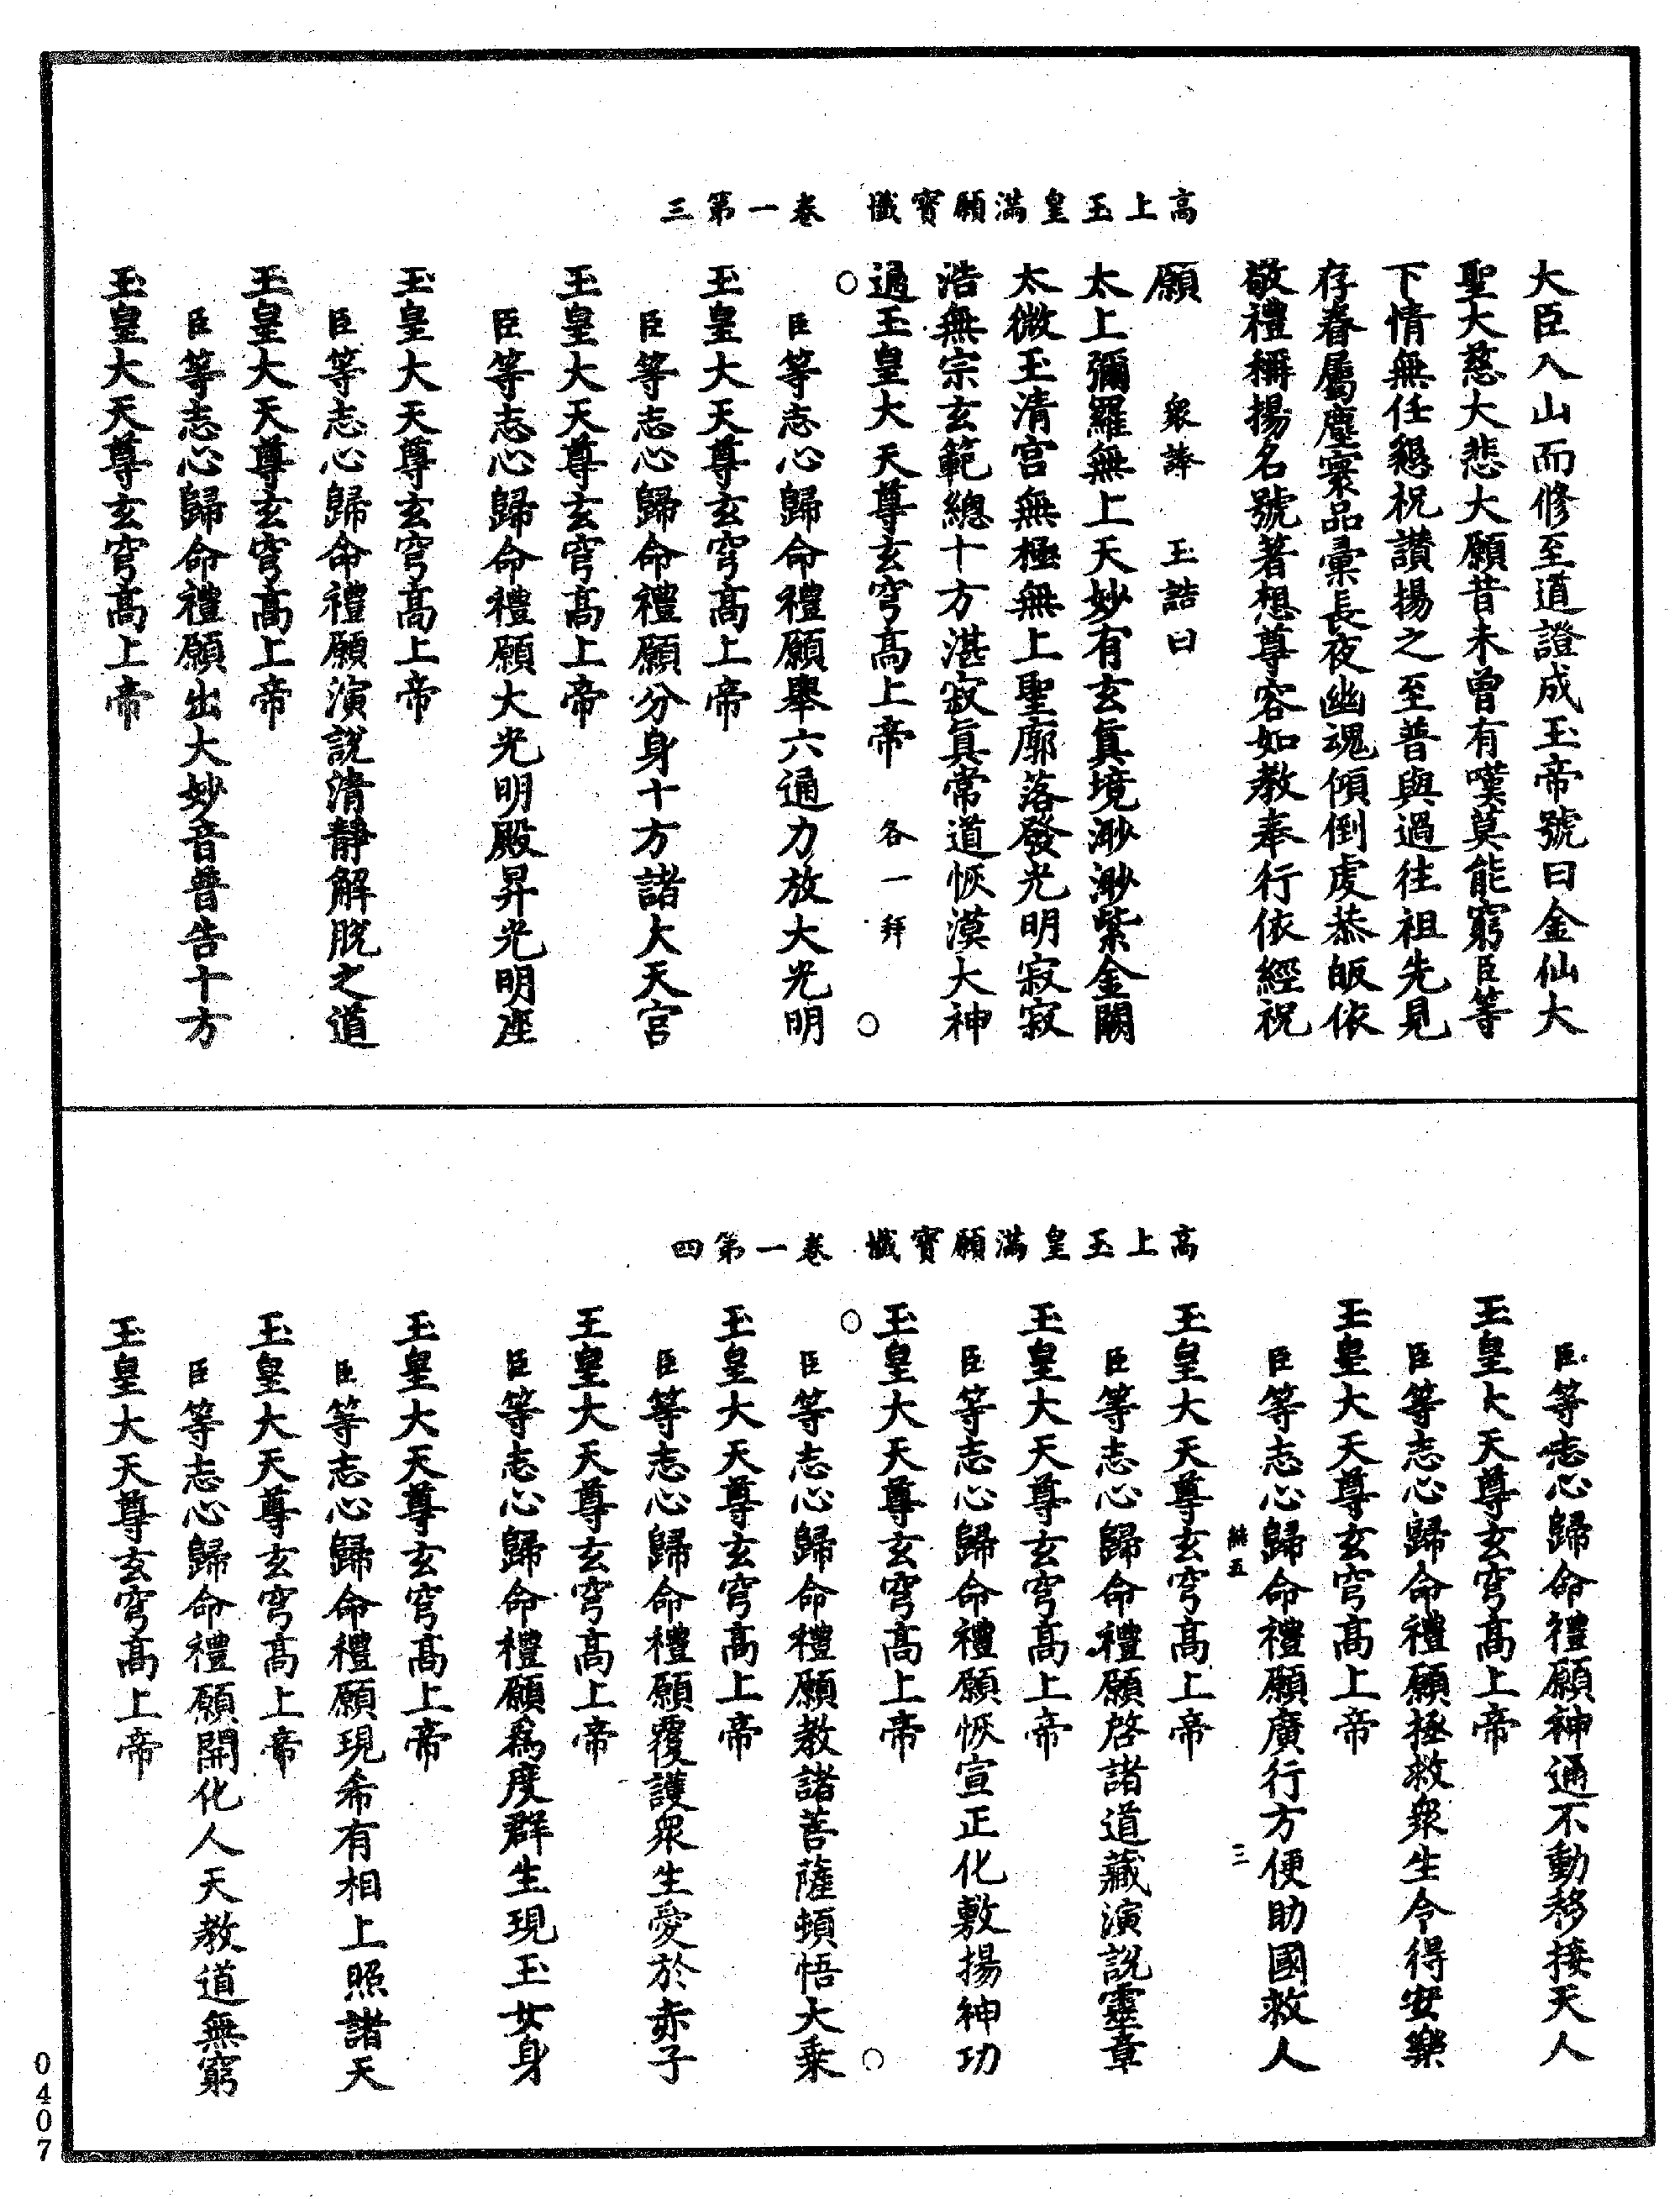 高上玉皇滿願寶懺　卷一第三
大臣入山而修至道證成玉帝號曰金仙大
聖大慈大悲大願昔未曾有嘆莫能窮臣等
下情無任懇祝讃揚之至普與過往祖先見
存眷屬塵寰品彙長夜幽魂傾倒虔恭皈依
敬禮稱揚名號著想尊容如教奉行依經祝
願　衆誦　玉誥曰
太上彌羅無上天妙有玄眞境渺渺紫金闕
太微玉清宮無極無上聖廓落發光明寂寂
浩無宗玄範總十方湛寂眞常道恢漠大神
通玉皇大天尊玄穹高上帝　各一拜
○　○
臣等志心歸命禮願舉六通力放大光明
玉皇大天尊玄穹高上帝
臣等志心歸命禮願分身十方諸大天宮
玉皇大天尊玄穹高上帝
臣等志心歸命禮願大光明殿昇光明座
玉皇大天尊玄穹高上帝
臣等志心歸命禮願演說清靜解脫之道
玉皇大天尊玄穹高上帝
臣等志心歸命禮願出大妙音普告十方
玉皇大天尊玄穹高上帝
高上玉皇滿願寶懺　卷一第四
臣等志心歸命禮願神通不動移接天人
玉皇大天尊玄穹高上帝
臣等志心歸命禮願拯救衆生令得安樂
玉皇大天尊玄穹高上帝
臣等志心歸命禮願廣行方便助國救人
五　三
玉皇大天尊玄穹高上帝
臣等志心歸命禮願啓諸道藏演說靈章
玉皇大天尊玄穹高上帝
臣等志心歸命禮願恢宣正化敷揚神功
玉皇大天尊玄穹高上帝
○　○
臣等志心歸命禮願教諸菩薩頓悟大乗
玉皇大天尊玄穹高上帝
臣等志心歸命禮願覆護衆生愛於赤子
玉皇大天尊玄穹高上帝
臣等志心歸命禮願爲度群生現玉女身
玉皇大天尊玄穹高上帝
臣等志心歸命禮願現希有相上照諸天
玉皇大天尊玄穹高上帝
臣等志心歸命禮願開化人天教道無窮
玉皇大天尊玄穹高上帝
0407